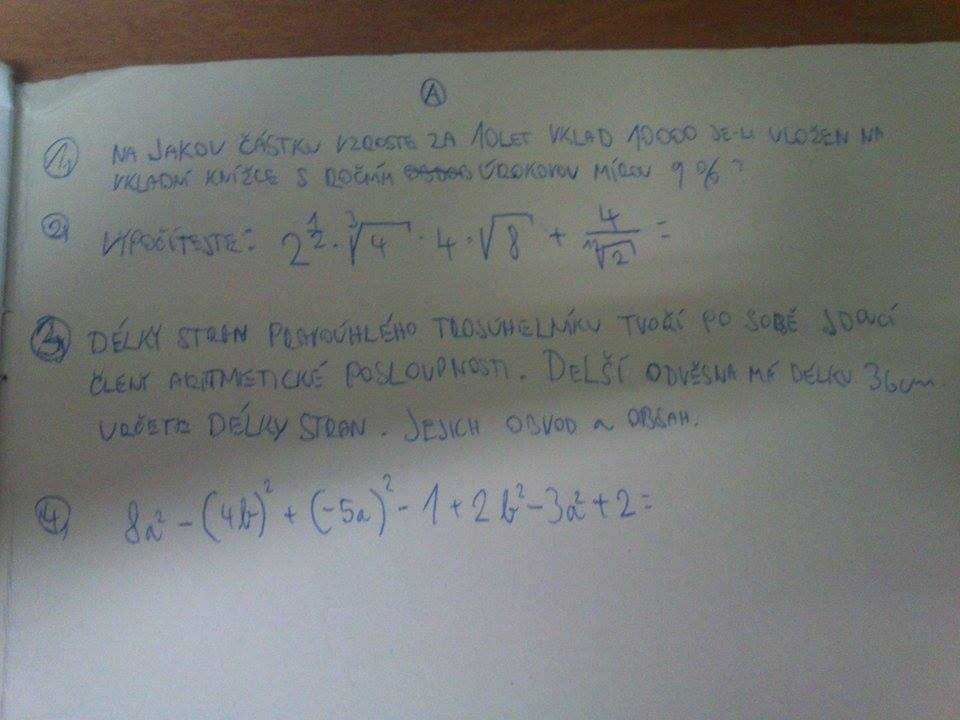 A
1, NA JAKOU ČÁSTKU VZROSTE ZA 10 LET VKLAD 10000 JE-LI VLOŽEN NA
VKLADNÍ KNÍŽCE S ROČNÍ ÚROKOVOU MÍROU 9 % ?
2, VYPOČÍTEJTE: 2^{1/2} · ∛4 · 4 · √8 + 4/√2 =
3, DÉLKY STRAN PRAVOÚHLÉHO TROJÚHELNÍKU TVOŘÍ PO SOBĚ JDOUCÍ
ČLENY ARITMETICKÉ POSLOUPNOSTI. DELŠÍ ODVĚSNA MÁ DÉLKU 36cm
URČETE DÉLKY STRAN. JEJICH OBVOD a OBSAH.
4, 8a² - (4b)² + (-5a)² - 1 + 2b² - 3a² + 2 =